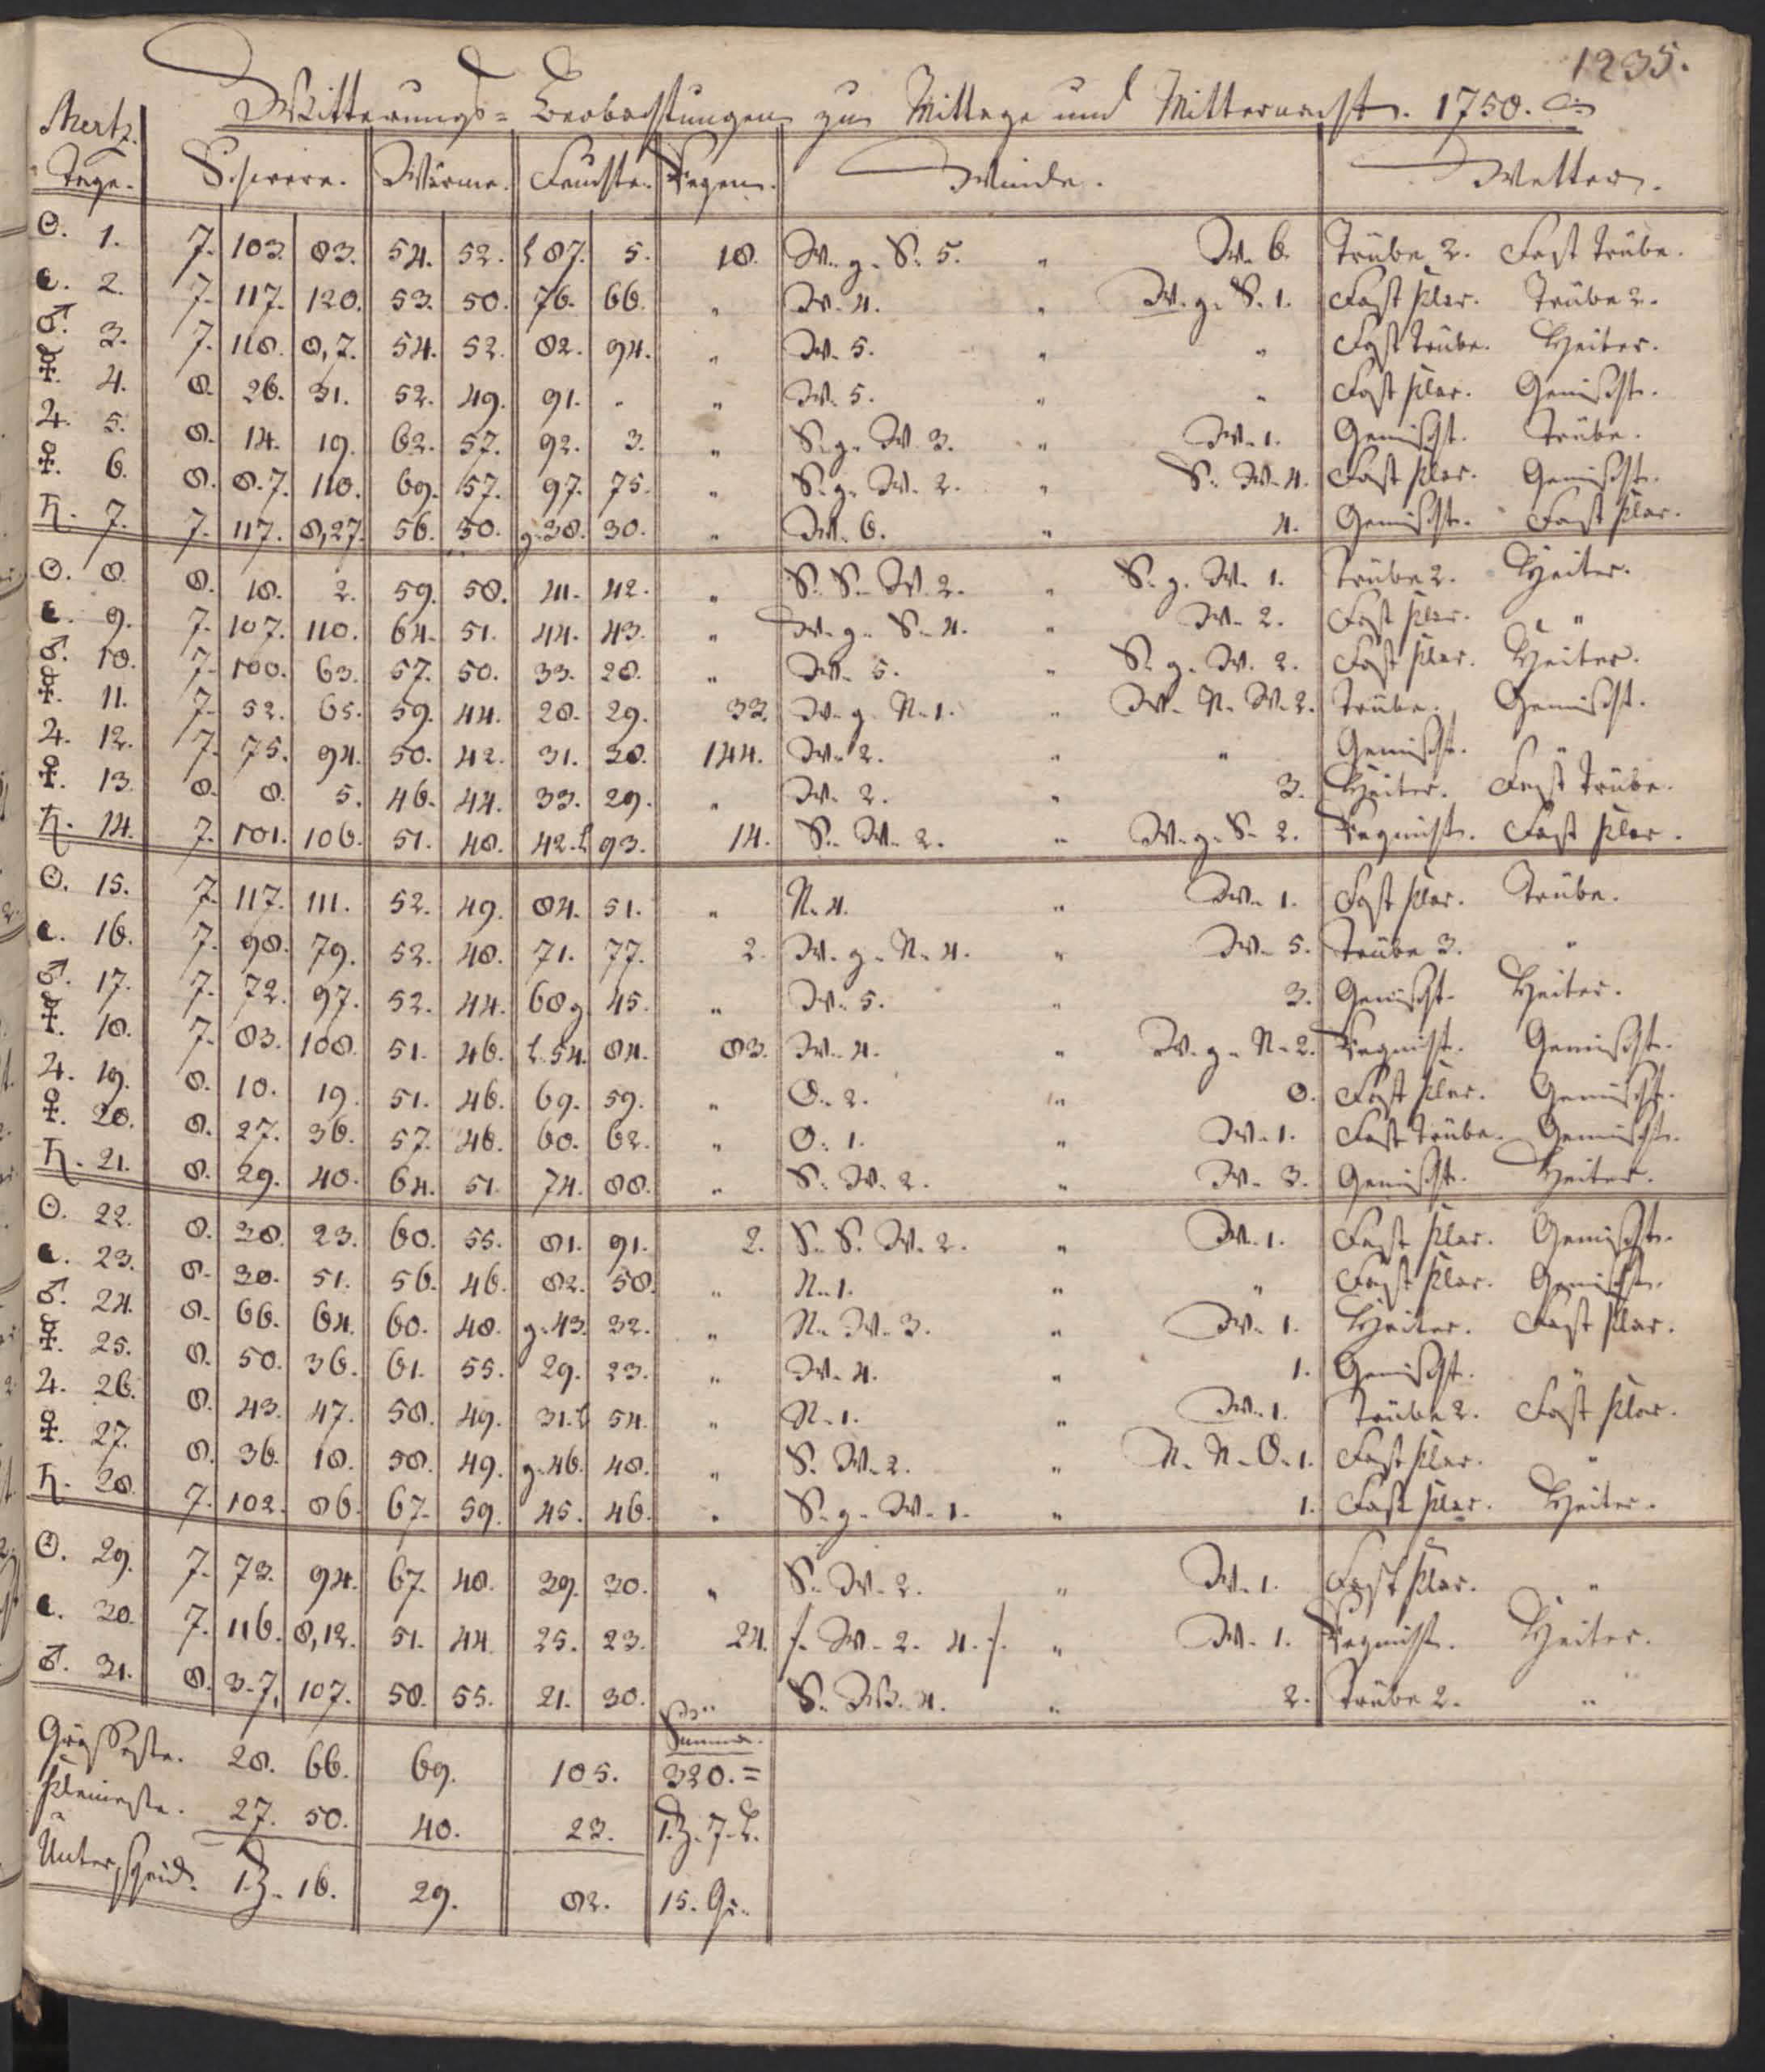 1235.
Witterungs-Beobachtungen zu Mittage und Mitternacht. 1750.
Mertz. Tage. Schwere. Wärme. Feuchte. Regen. Winde. Wetter.
☉. 1. 7. 103. 83. 54. 52. l 87. 5. 18. W. g. S. 5. " W. 6. Trübe 2. Fast trübe.
☾. 2. 7. 117. 120. 53. 50. 76. 66. " W. 4. " W. g. S. 1. Fast klar. Trübe 2.
♂. 3. 7. 118. 8,7. 54. 52. 82. 94. " W. 5. " " Fast trübe. Heiter.
☿. 4. 8. 26. 31. 52. 49. 91. " " W. 5. " " Fast klar. Gemischt.
♃. 5. 8. 14. 19. 62. 57. 92. 3. " S. g. W. 3. " W. 1. Gemischt. Trübe.
♀. 6. 8. 8.7. 110. 69. 57. 97. 75. " S. g. W. 2. " S. W. 4. Fast klar. Gemischt.
♄. 7. 7. 117. 8,27. 56. 50. g. 38. 30. " W. 6. " 4. Gemischt. Fast klar.
☉. 8. 8. 18. 2. 59. 58. 41. 42. " S. S. W. 2. " S. g. W. 1. Trübe 2. Heiter.
☾. 9. 7. 107. 110. 64. 51. 44. 43. " W. g. S. 4. " W. 2. Fast klar. "
♂. 10. 7. 100. 63. 57. 50. 33. 28. " W. 5. " S. g. W. 2. Fast klar. Heiter.
☿. 11. 7. 52. 65. 59. 44. 28. 29. 33. W. g. N. 1. " W. N. W. 2. Trübe. Gemischt.
♃. 12. 7. 75. 94. 50. 42. 31. 38. 144. W. 2. " " Gemischt. "
♀. 13. 8. 8. 5. 46. 44. 33. 29. " W. 2. " 3. Heiter. Fast trübe.
♄. 14. 7. 101. 106. 51. 48. 42. l 93. 14. S. W. 2. " W. g. S. 2. Regnicht. Fast klar.
☉. 15. 7. 117. 111. 52. 49. 84. 51. " N. 4. " W. 1. Fast klar. Trübe.
☾. 16. 7. 98. 79. 52. 48. 71. 77. 2. W. g. N. 4. " W. 5. Trübe 3. "
♂. 17. 7. 72. 97. 52. 44. 68 g. 45. " W. 5. " 3. Gemischt. Heiter.
☿. 18. 7. 83. 108. 51. 46. l. 54. 84. 83. W. 4. " W. g. N. 2. Regnicht. Gemischt.
♃. 19. 8. 10. 19. 51. 46. 69. 59. " O. 2. " O. Fast klar. Gemischt.
♀. 20. 8. 27. 36. 57. 46. 60. 62. " O. 1. " W. 1. Fast trübe. Gemischt.
♄. 21. 8. 29. 40. 64. 51. 74. 88. " S. W. 2. " W. 3. Gemischt. Heiter.
☉. 22. 8. 38. 23. 60. 55. 81. 91. 2. S. S. W. 2. " W. 1. Fast klar. Gemischt.
☾. 23. 8. 30. 51. 56. 46. 82. 58. " N. 1. " " Fast klar. Gemischt.
♂. 24. 8. 66. 64. 60. 48. g. 43. 32. " N. W. 3. " W. 1. Heiter. Fast klar.
☿. 25. 8. 50. 36. 61. 55. 29. 23. " W. 4. " 1. Gemischt. "
♃. 26. 8. 43. 47. 58. 49. 31. l 54. " N. 1. " W. 1. Trübe 2. Fast klar.
♀. 27. 8. 36. 18. 58. 49. g. 46. 48. " S. W. 2. " N. N. O. 1. Fast klar. "
♄. 28. 7. 102. 86. 67. 59. 45. 46. " S. g. W. 1. " 1. Fast klar. Heiter.
☉. 29. 7. 73. 94. 67. 48. 39. 30. " S. W. 2. " W. 1. Fast klar. "
☾. 30. 7. 116. 8,12. 51. 44. 25. 23. 24. f. W. 2. 4. f. " W. 1. Regnicht. Heiter.
♂. 31. 8. 3.7, 107. 58. 55. 21. 30. " S. W. 4. " 2. Trübe 2. "
Summa.
Grösseste. 28. 66. 69. 105. 320. =
Kleineste. 27. 50. 40. 23. 1. Z. 7. L.
Unterscheid. 1. Z. 16. 29. 82. 15. Gr.